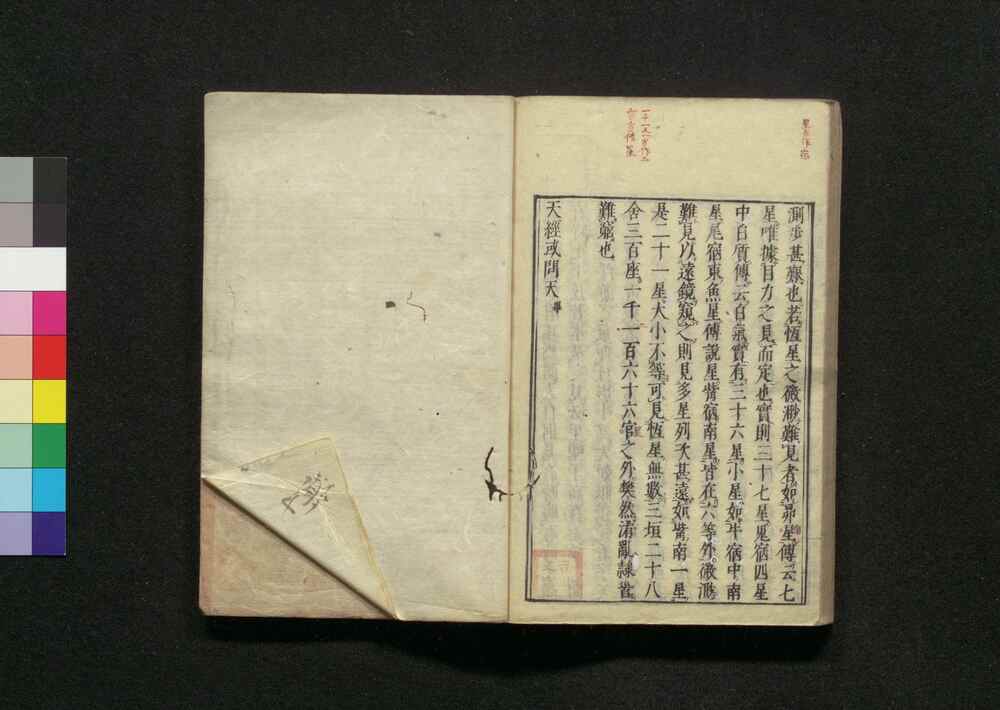 測步甚艱也若恆星之微渺難見者如昴星傳云七
星唯據目力之見而定也實則三十七星鬼宿四星
中白質傳云白氣實有三十六星小星如牛宿中南
星尾宿東魚星傳說星觜宿南星皆在六等外微渺
難見以遠鏡窺之則見多星列次甚遠如觜南一星
是二十一星大小不等可見恆星無數三垣二十八
舍三百座一千一百六十六官之外樊然淆亂隸首
難窮也
天經或問天畢